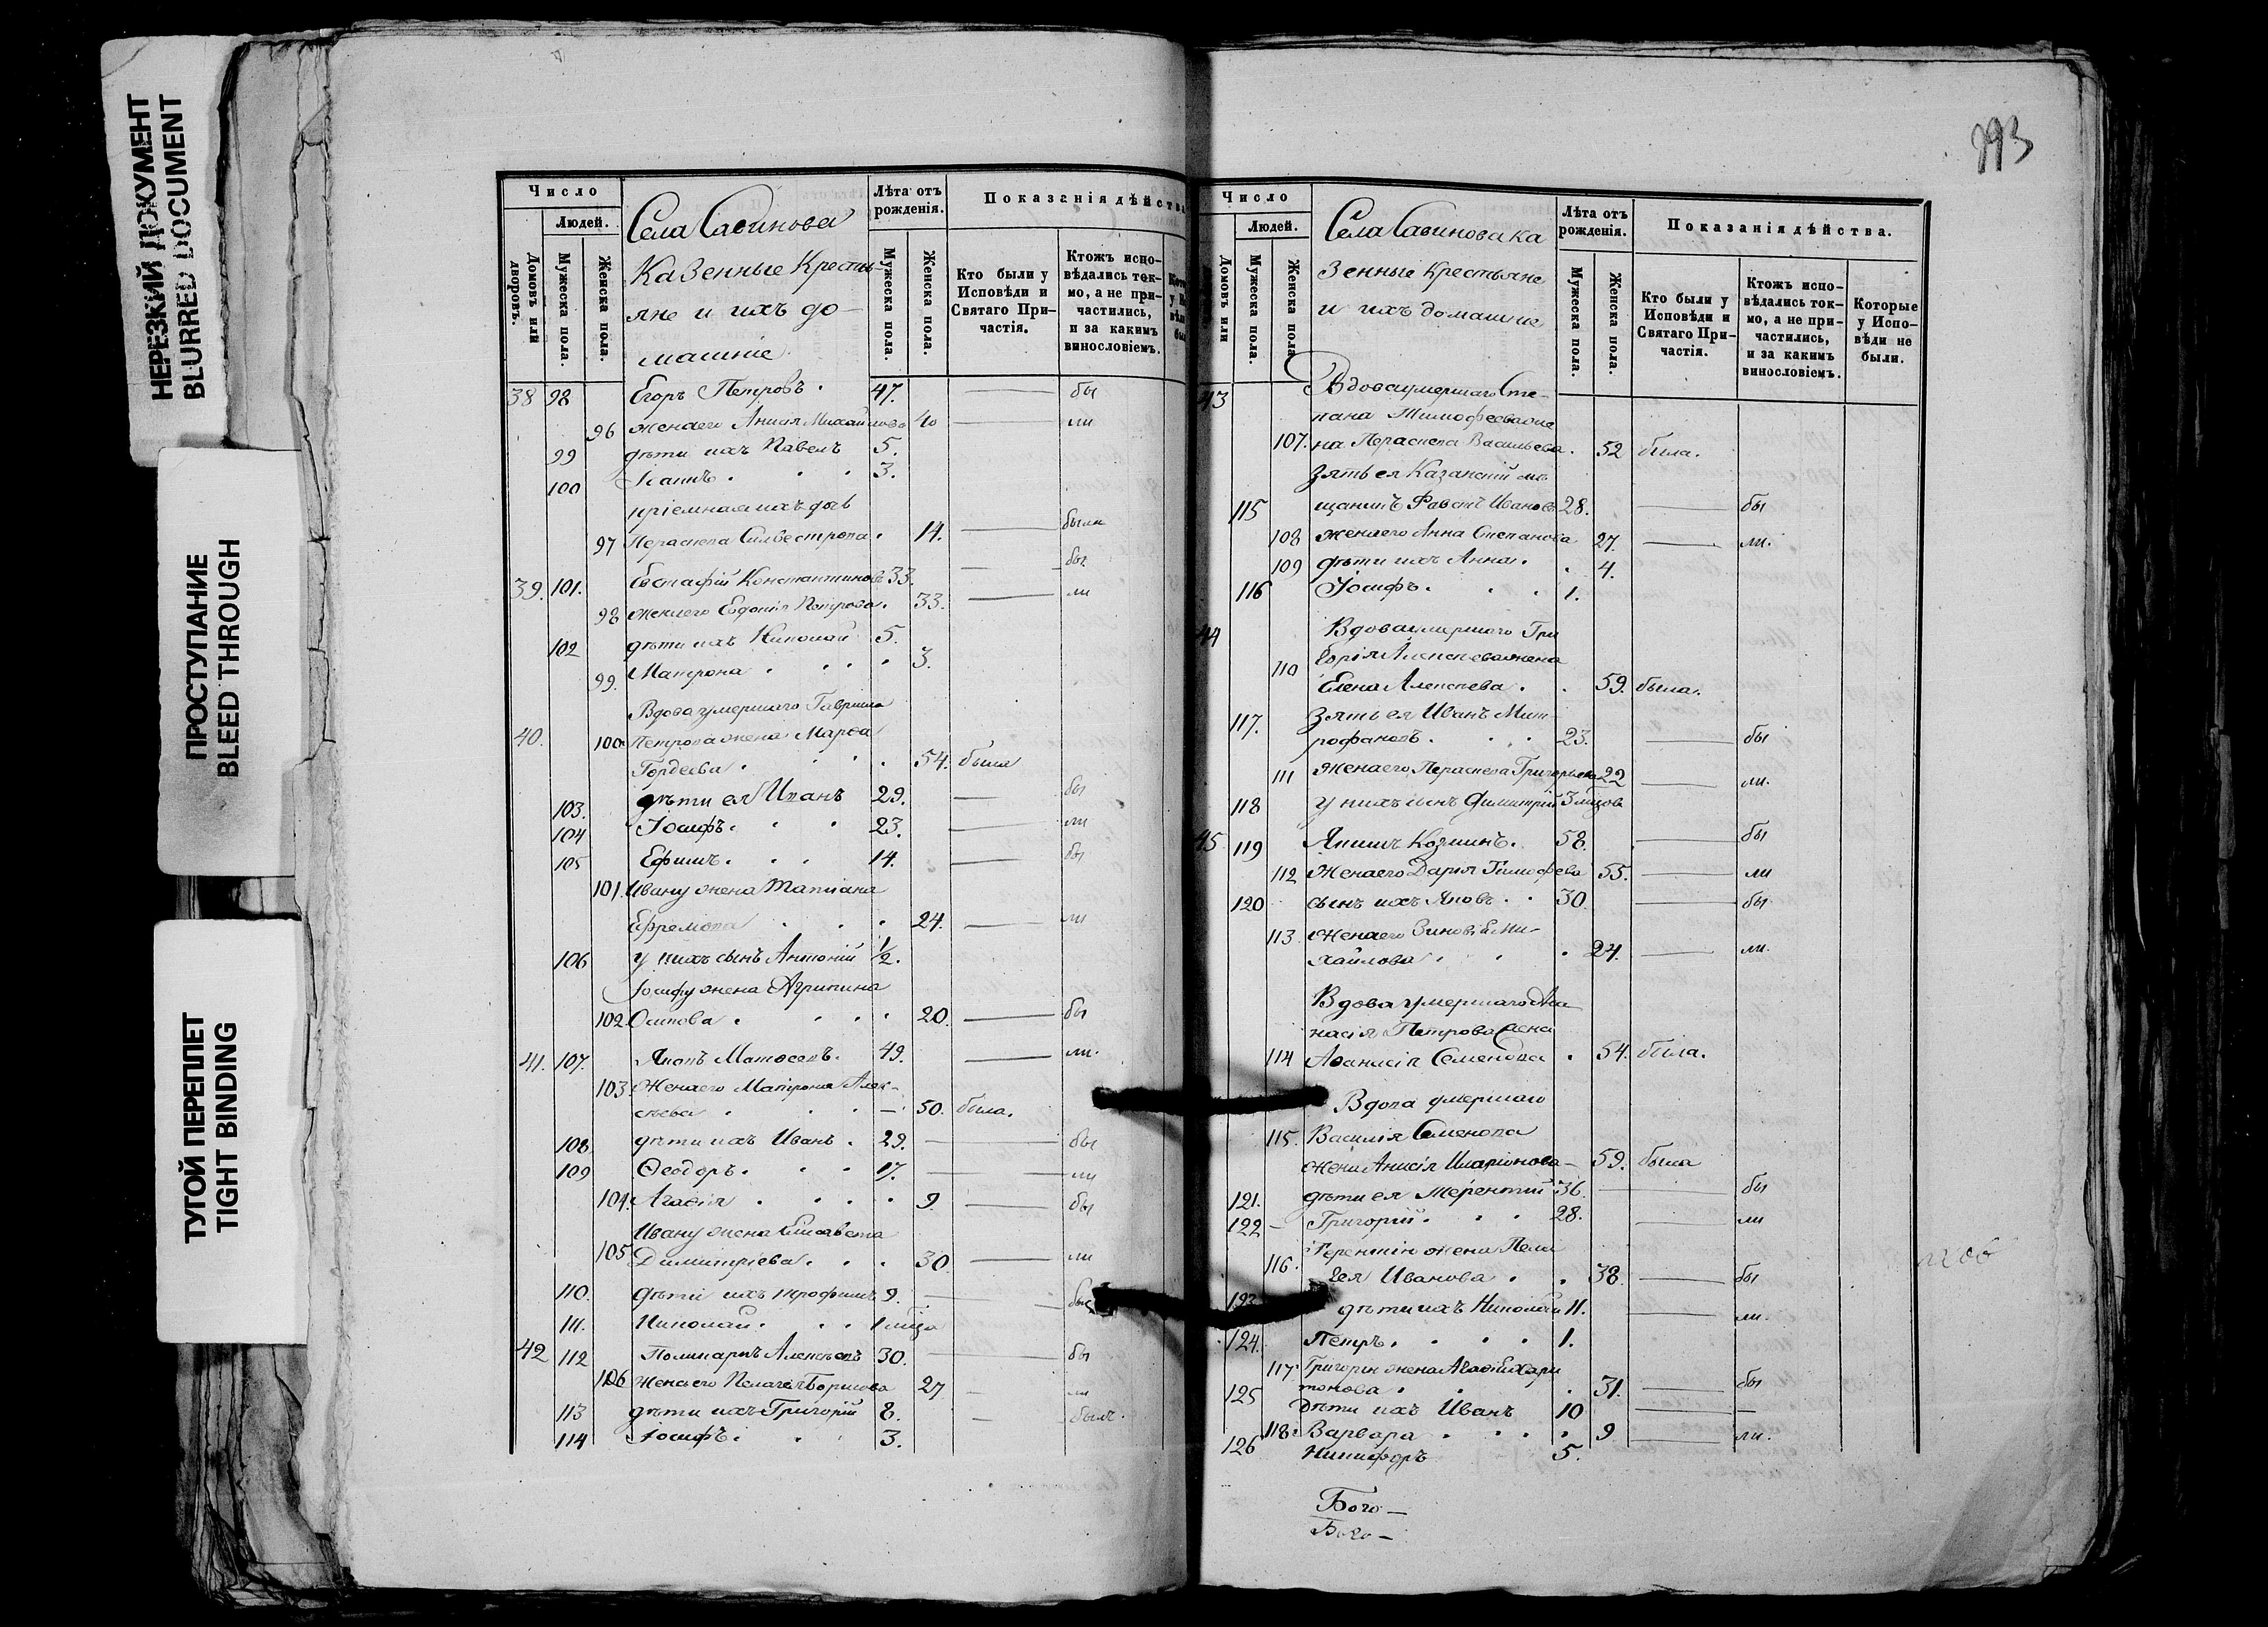 НЕРЕЗКИЙ ДОКУМЕНТ
BLURRED DOCUMENT
ПРОСТУПАНИЕ
BLEED THROUGH
ТУГОЙ ПЕРЕПЛЕТ
TIGHT BINDING
Число
Людей.
Домовъ или дворовъ.
Мужеска пола.
Женска пола.
Села Савинова
Казенные Кресть-
яне и ихъ до-
машніе
Лѣта отъ рожденія.
Мужеска пола.
Женска пола.
Показанія дѣйства
Кто были у Исповѣди и Святаго При-частія.
Ктожъ испо-вѣдались ток-мо, а не при-частились, и за какимъ винословіемъ.
38 98 Егоръ Петровъ 47. бы
96 жена его Анисія Михайлова 40 ли
99 дѣти ихъ Павелъ 5.
100 Іоаннъ 3.
пріемная ихъ дочь
97 Параскева Силвестрова 14. была
39. 101. Евстафій Константиновъ 33. бы
98 жена его Евдокія Петрова 33. ли
102 дѣти ихъ Николай 5.
99. Матрона 3.
Вдова умершаго Гавріила
40. 100 Петрова жена Марѳа
Гордеева 54. была
103. дѣти ея Иванъ 29. бы
104 Іосифъ 23. ли
105 Ефимъ 14. бы
101. Ивану жена Татіана
Ефремова 24. ли
106 у нихъ сынъ Антоній 1/2.
Іосифу жена Агрипина
102. Осипова 20. бы
41. 107. Яковъ Матвеевъ 49. ли.
103. Жена его Матрона Алек-
сѣева 50. была.
108. дѣти ихъ Иванъ 29. бы
109 Ѳеодоръ 17. ли
104. Агафія 9. бы
Ивану жена Елисавета
105 Димитріева 30. ли
110. дѣти ихъ Трофимъ 9. бы
111. Николай 1 мѣся
42 112 Поликарпъ Алексѣевъ 30. бы
106 Жена его Пелагея Борисова 27 ли
113 дѣти ихъ Григорій 8. былъ.
114 Іосифъ 3.
293
Число
Людей.
Домовъ или
Мужеска пола.
Женска пола.
Села Савинова ка
зенные крестьяне
и ихъ домашніе
Лѣта отъ рожденія.
Мужеска пола.
Женска пола.
Показанія дѣйства.
Кто были у Исповѣди и Святаго При-частія.
Ктожъ испо-вѣдались ток-мо, а не при-частились, и за какимъ винословіемъ.
Которые у Испо-вѣди не были.
43 Вдова умершаго Сте-
пана Тимофеева же
107. на Параскева Васильева. 52 была.
Зять ея Казанскій мѣ
115 щанинъ Ивановъ 28. бы
108 жена его Анна Степанова 27. ли.
109 дѣти ихъ Анна 4.
116 Іосифъ 1.
44 Вдова умершаго Гри
110 горія Алексеева жена
Елена Алексеева 59. была.
117. Зять ея Иванъ Мит-
рофановъ 23. бы
111 Жена его Параскева Григорьева 22 ли.
118 у нихъ сынъ Димитрій 3 мѣсов
45 119 Якимъ Козминъ. 58. бы
112 Жена его Дарія Тимофеева 55. ли
120 сынъ ихъ Яковъ 30. бы
113. жена его Зиновія Ми-
хайлова 24. ли.
Вдова умершаго Аѳа
насія Петрова жена
114 Аѳанасія Семенова 54. была.
Вдова умершаго
115. Василія Семенова
жена Анисія Иларіонова 59. была
121. дѣти ея Терентій 36. бы
122 Григорій 28. ли
116. Терентію жена Пела
гея Иванова 38. бы
123 дѣти ихъ Николай 11. ли.
124. Петръ 1.
117. Григорію жена Агафія Хари
тонова 31. бы
125 Дѣти ихъ Иванъ 10
118. Варвара 9 ли.
126 Никифоръ 5.
Бого-
Бого-